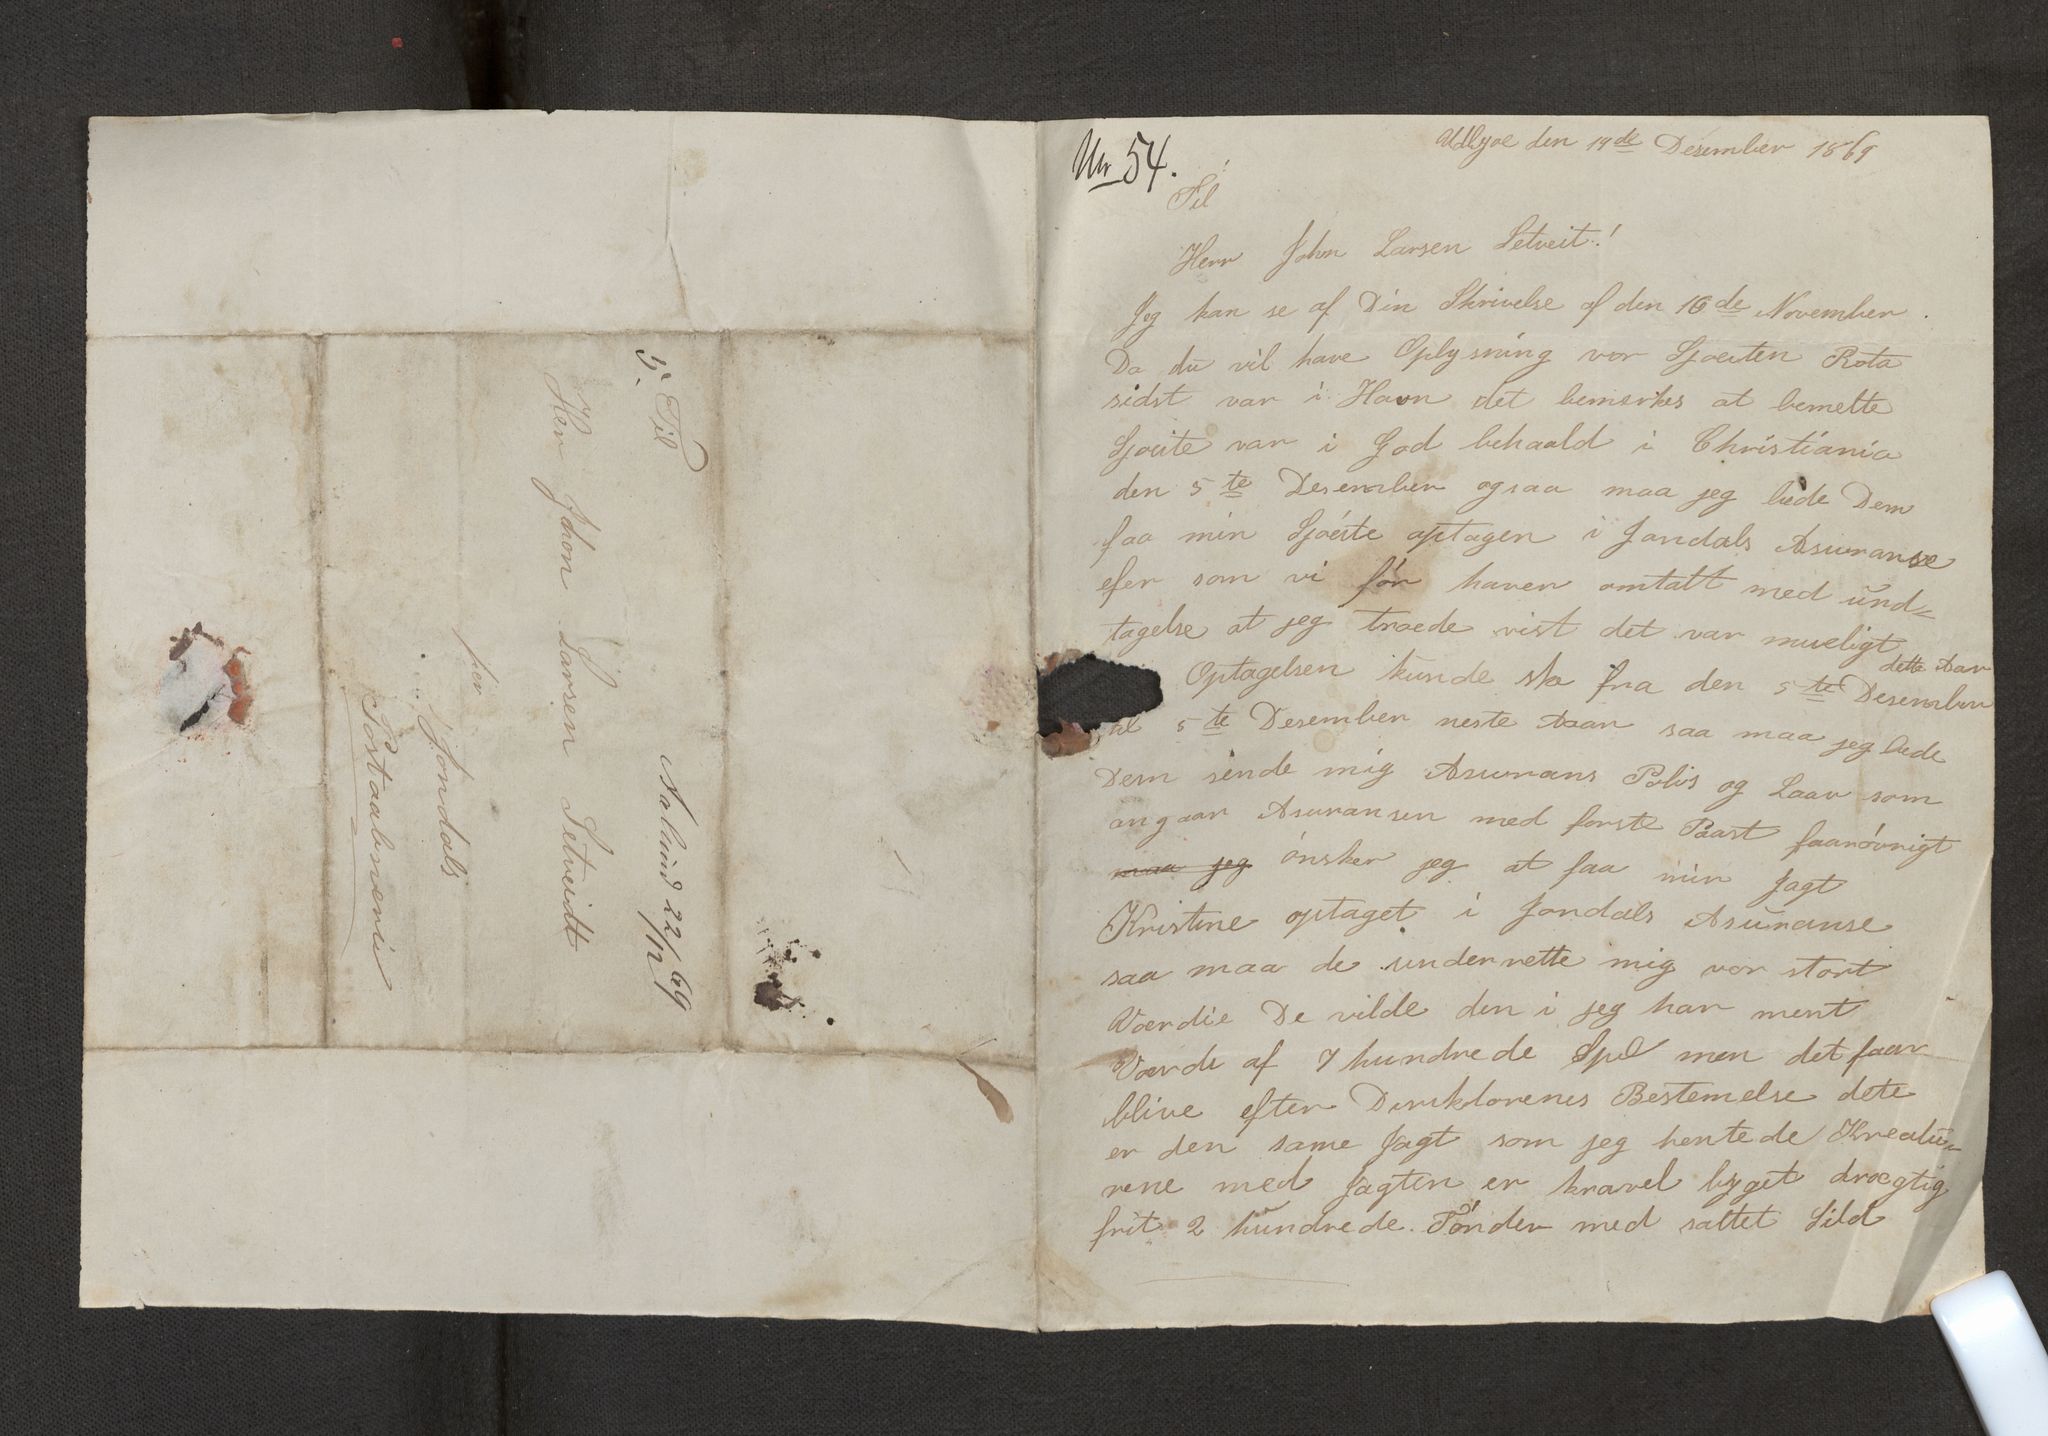 5. Til
Herr Jahon Larsen Setveidt
per
Jondals
Postaabneri
Nalsund 22/12 69
Nr 54.
Udbyoe den 19de Desember 1869
Til
Herr John Larsen Setveit!
Jeg kan se af Din Skrivelse af den 16de November.
Da du vil have Oplysning vor Sjoeiten Rota
sidst var i Havn det bemerkes at bemelte
Sjoeite var i God behaald i Christiania
den 5te Desember ogsaa maa jeg bede Dem
faa min Sjoeite optagen i Jondals Asuranse
efer som vi før haver omtalt med und-
tagelse at jeg troede vist det var mueligt
Optagelsen kunde ske fra den 5te Desember dette Aar
til 5te Desember neste Aaar saa maa jeg bede
Dem sende mig Asurans Polis og Laav som
angaar Asuransen med forste Paast faarøvrigt
maa jeg ønsker jeg at faa min Jagt
Kristine optaget i Jondals Asuranse
saa maa de underrette mig vor stort
Værdie De vilde den i jeg har ment
Værdi af 7 hundrede Spd men det faar
blive efter Direktorenes Bestemelse dete
er den same Jagt som jeg hentede Kreatu-
rene med Jagten er kravel bygget drægtig
frit 2 hundrede Tønder med saltet Sild